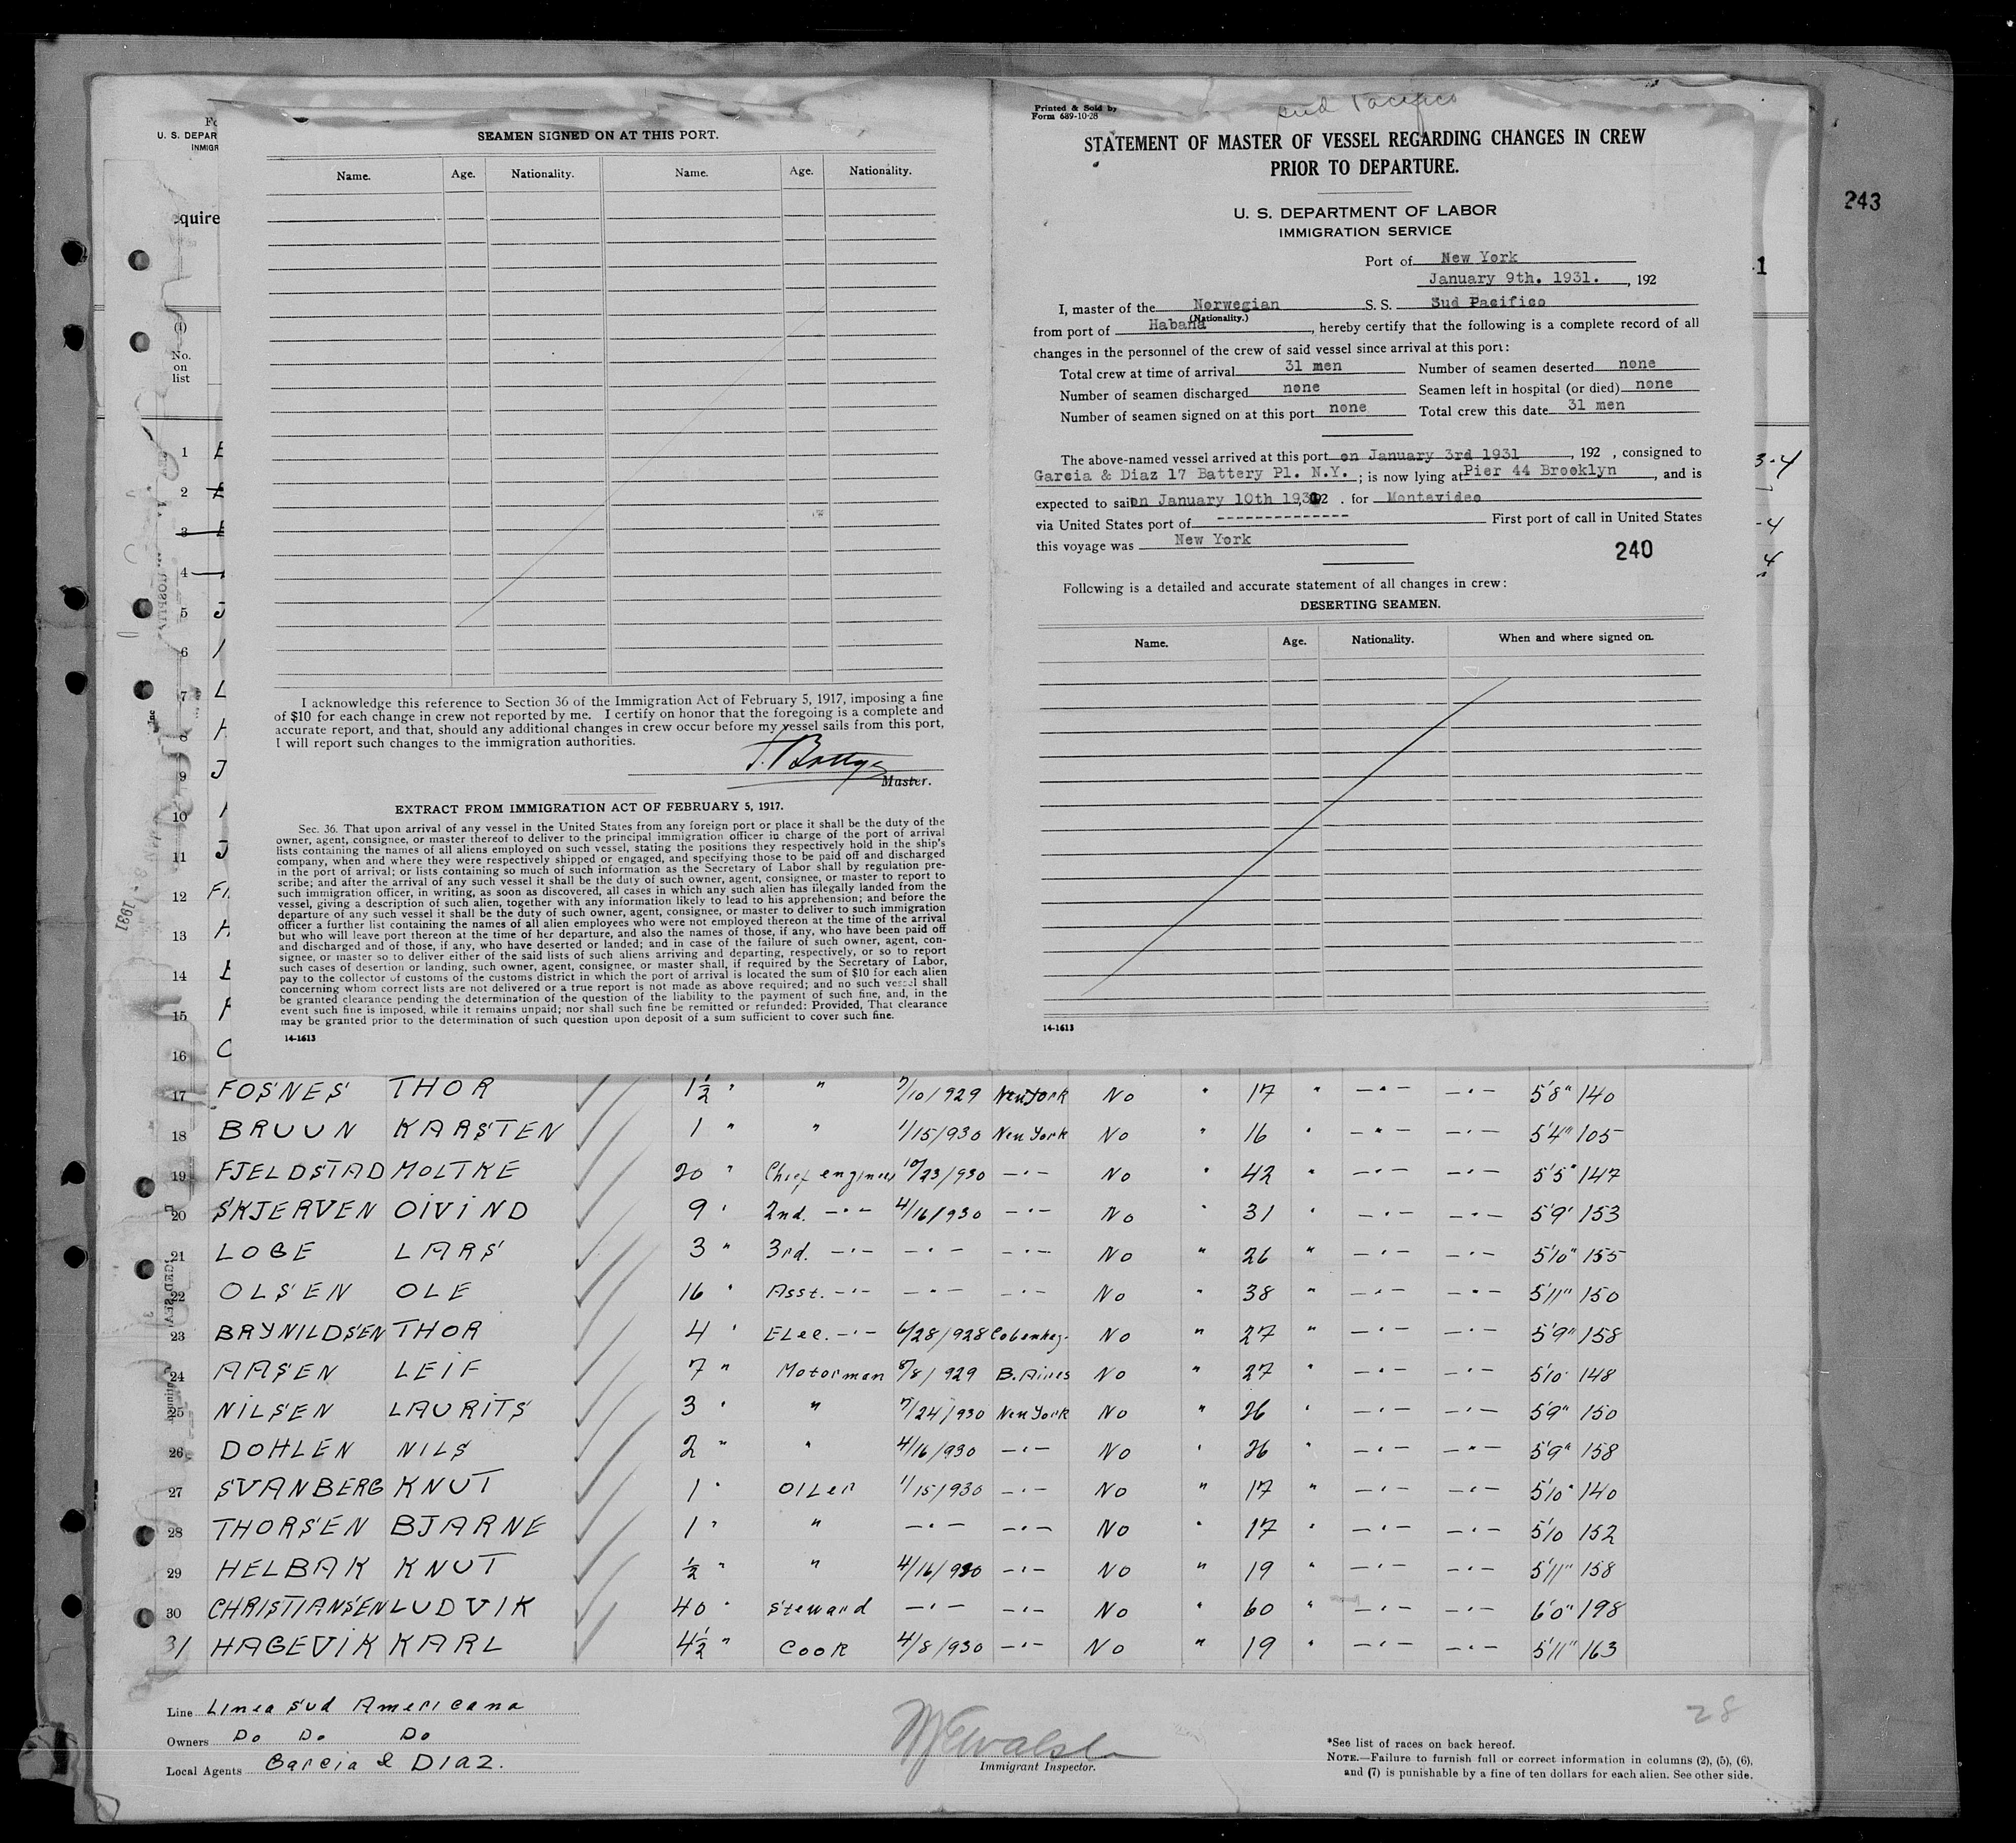 243
SEAMEN SIGNED ON AT THIS PORT.
Name. Age. Nationality. Name. Age. Nationality.
I acknowledge this reference to Section 36 of the Immigration Act of February 5, 1917, imposing a fine
of $10 for each change in crew not reported by me. I certify on honor that the foregoing is a complete and
accurate report, and that, should any additional changes in crew occur before my vessel sails from this port,
I will report such changes to the immigration authorities.
Master.
EXTRACT FROM IMMIGRATION ACT OF FEBRUARY 5, 1917.
Sec. 36. That upon arrival of any vessel in the United States from any foreign port or place it shall be the duty of the
owner, agent, consignee, or master thereof to deliver to the principal immigration officer in charge of the port of arrival
lists containing the names of all aliens employed on such vessel, stating the positions they respectively hold in the ship's
company, when and where they were respectively shipped or engaged, and specifying those to be paid off and discharged
in the port of arrival; or lists containing so much of such information as the Secretary of Labor shall by regulation pre-
scribe; and after the arrival of any such vessel it shall be the duty of such owner, agent, consignee, or master to report to
such immigration officer, in writing, as soon as discovered, all cases in which any such alien has illegally landed from the
vessel, giving a description of such alien, together with any information likely to lead to his apprehension; and before the
departure of any such vessel it shall be the duty of such owner, agent, consignee, or master to deliver to such immigration
officer a further list containing the names of all alien employees who were not employed thereon at the time of the arrival
but who will leave port thereon at the time of her departure, and also the names of those, if any, who have been paid off
and discharged and of those, if any, who have deserted or landed; and in case of the failure of such owner, agent, con-
signee, or master so to deliver either of the said lists of such aliens arriving and departing, respectively, or so to report
such cases of desertion or landing, such owner, agent, consignee, or master shall, if required by the Secretary of Labor,
pay to the collector of customs of the customs district in which the port of arrival is located the sum of $10 for each alien
concerning whom correct lists are not delivered or a true report is not made as above required; and no such vessel shall
be granted clearance pending the determination of the question of the liability to the payment of such fine, and, in the
event such fine is imposed, while it remains unpaid; nor shall such fine be remitted or refunded: Provided, That clearance
may be granted prior to the determination of such question upon deposit of a sum sufficient to cover such fine.
14-1613
Sud Pacifico
Printed & Sold by
Form 689-10-28
STATEMENT OF MASTER OF VESSEL REGARDING CHANGES IN CREW
PRIOR TO DEPARTURE.
U. S. DEPARTMENT OF LABOR
IMMIGRATION SERVICE
Port of New York
January 9th. 1931. , 192
I, master of the Norwegian S. S. Sud Pacifico
(Nationality.)
from port of Habana , hereby certify that the following is a complete record of all
changes in the personnel of the crew of said vessel since arrival at this port:
Total crew at time of arrival 31 men Number of seamen deserted none
Number of seamen discharged none Seamen left in hospital (or died) none
Number of seamen signed on at this port none Total crew this date 31 men
The above-named vessel arrived at this port on January 3rd 1931 , 192 , consigned to
Garcia & Diaz 17 Battery Pl. N.Y. ; is now lying at Pier 44 Brooklyn , and is
expected to sail on January 10th 1931 . for Montevideo
via United States port of -------------- First port of call in United States
this voyage was New York
240
Following is a detailed and accurate statement of all changes in crew:
DESERTING SEAMEN.
Name. Age. Nationality. When and where signed on.
14-1613
U. S. DEPAR
(1)
No.
on
list
1
2
3
4
5
6
7
8
9
10
11
12
13
14
15
16
17 FOSNES THOR 1½ " " 7/10/929 New York No " 17 " —"— —"— 5'8" 140
18 BRUUN KARSTEN 1 " " 1/15/930 New York No " 16 " —"— —"— 5'4" 105
19 FJELDSTAD MOLTKE 20 " Chief engineer 10/23/930 —"— No " 42 " —"— —"— 5'5" 147
20 SKJERVEN OIVIND 9 " 2nd. —"— 4/16/930 —"— No " 31 " —"— —"— 5'9" 153
21 LOGE LARS 3 " 3rd. —"— —"— —"— No " 26 " —"— —"— 5'10" 155
22 OLSEN OLE 16 " Asst. —"— —"— —"— No " 38 " —"— —"— 5'11" 150
23 BRYNILDSEN THOR 4 " Elec. —"— 6/28/928 Cobenhag. No " 27 " —"— —"— 5'9" 158
24 AASEN LEIF 7 " Motorman 8/8/929 B. Aires No " 27 " —"— —"— 5'10" 148
25 NILSEN LAURITS 3 " " 7/24/930 New York No " 26 " —"— —"— 5'9" 150
26 DOHLEN NILS 2 " " 4/16/930 —"— No " 26 " —"— —"— 5'9" 158
27 SVANBERG KNUT 1 " Oiler 1/15/930 —"— No " 17 " —"— —"— 5'10" 140
28 THORSEN BJARNE 1 " " —"— —"— No " 17 " —"— —"— 5'10 152
29 HELBAK KNUT ½ " " 4/16/930 —"— No " 19 " —"— —"— 5'11" 158
30 CHRISTIANSEN LUDVIK 40 " Steward —"— —"— No " 60 " —"— —"— 6'0" 198
31 HAGEVIK KARL 4½ " Cook 4/8/930 —"— No " 19 " —"— —"— 5'11" 163
Line Linea Sud Americana
Owners Do Do Do
Local Agents Garcia & Diaz.
Immigrant Inspector.
28
*See list of races on back hereof.
NOTE.—Failure to furnish full or correct information in columns (2), (5), (6),
and (7) is punishable by a fine of ten dollars for each alien. See other side.